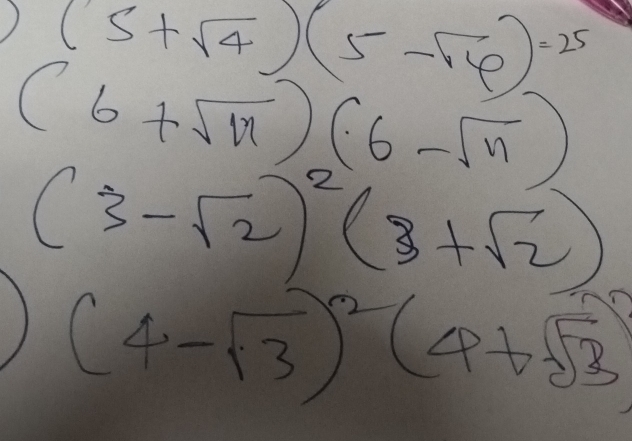 ) (5 + √4)(5 - √4) = 25
(6 + √11)(6 - √11)
(3 - √2)² (3 + √2)
) (4 - √3)² (4 + √3)²